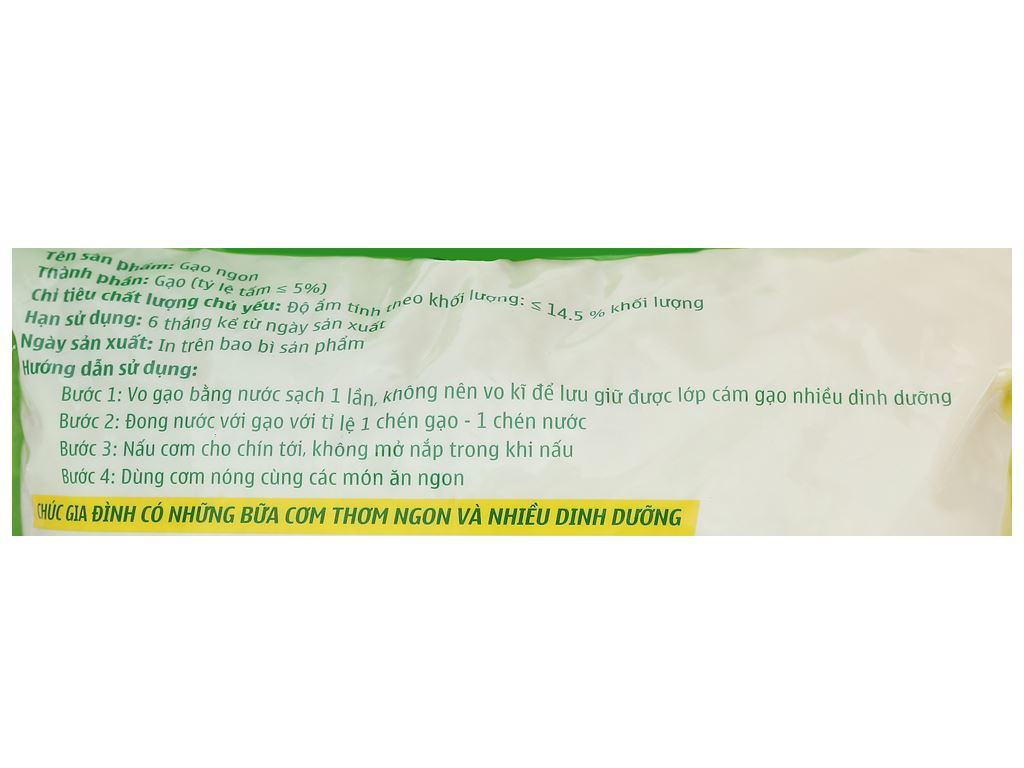 Tên sản phẩm: Gạo ngon
Thành phần: Gạo (tỷ lệ tấm ≤ 5%)
Chỉ tiêu chất lượng chủ yếu: Độ ẩm tính theo khối lượng: ≤ 14.5 % khối lượng
Hạn sử dụng: 6 tháng kể từ ngày sản xuất
Ngày sản xuất: In trên bao bì sản phẩm
Hướng dẫn sử dụng:
Bước 1: Vo gạo bằng nước sạch 1 lần, không nên vo kĩ để lưu giữ được lớp cám gạo nhiều dinh dưỡng
Bước 2: Đong nước với gạo với tỉ lệ 1 chén gạo - 1 chén nước
Bước 3: Nấu cơm cho chín tới, không mở nắp trong khi nấu
Bước 4: Dùng cơm nóng cùng các món ăn ngon
CHÚC GIA ĐÌNH CÓ NHỮNG BỮA CƠM THƠM NGON VÀ NHIỀU DINH DƯỠNG